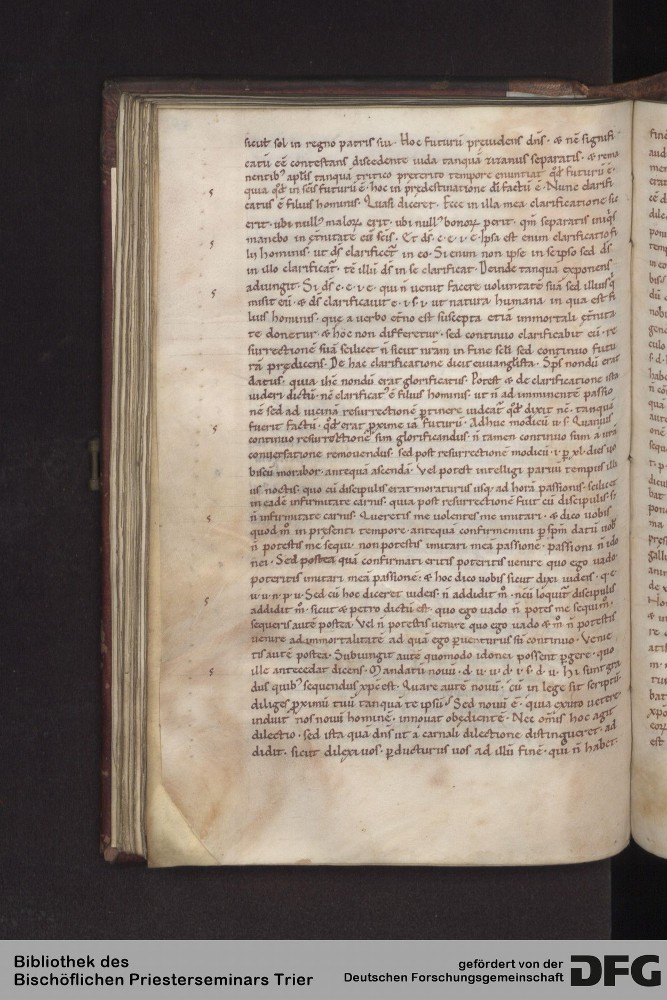 sicut sol in regno patris sui. Hoc futurū previdens dns̄. & nē signifi
catū eē contestans discedente iuda tanquā zizaniis separatis. & rema
nentib' apl̄is tanqua tritico preterito tempore enuntiat qd̄ futurū ē.
quia qd̄ in seis futurū ē. hoc in predestinatione di factū ē. Nunc clarifi
catus ē filius hominis. Quasi diceret. Ecce in illa mea clarificatione sic
erit. ubi null' maloꝝ erit. ubi null' bonoꝝ perit. qm̄ separatis iniq̄s
manebo in et̄nitate cū scīs. Et ds. c. e. v. e. Ipsa est enim clarificatio fi
lii hominis. ut ds̄ clarificet' in eo. Si enim non ipse in se ipso sed ds̄
in illo clarificat'. tē illū ds̄ in se clarificat. Deinde tanqua exponens
adiungit. Si ds̄ c. e. v. e. qui n̄ venit facere voluntatē suā sed illius q̄
misit eū. & ds̄ clarificavit e. i. s. v. ut natura humana in qua est fi
lius hominis. que a verbo et̄no est suscepta etiā immortali et̄nita
te donetur. & hoc non differetur. sed continuo clarificabit eū. re
surrectionē suā scilicet n̄ sicut nr̄am in fine scl̄i sed continuo futu
rā p̄dicens. De hac clarificatione dicit evvangl̄ista. Sps̄ nondū erat
datus. quia ih̄c nondū erat glorificatus. Potest & de clarificatione ista
videri dictū. nē clarificat' ē filius hominis. ut n̄ ad imminentē passio
nē sed ad vicinā resurrectionē ptinere videat' qd̄ dixit nē. tanquā
fuerit factū. qd̄ erat pxime iā futurū. Adhuc modicū v. s. Quanvis
continuo resurrectionē sim glorificandus. n̄ tamen continuo sum a vr̄a
conversatione removendus. sed post resurrectionē modicū. i. p xl. dies vo
biscū morabor. antequā ascendā. Vel potest intelligi parvū tempus illi
us noctis. quo cū discipulis erat moraturus usq; ad horā passionis. scilicet
in eadē infirmitate carnis. quia post resurrectionē fuit cū discipulis. s;
n̄ infirmitate carnis. Queretis me volentes me imitari. & dico vobis
quod m̊ in presenti tempore. antequā confirmemini p sp̄m datū vob'
n̄ potestis me sequi. non potestis imitari meā passionē. passioni n̄ ido
nei. Sed postea quā confirmati eritis poteritis venire quo ego vado.
poteritis imitari meā passionē. & hoc dico vobis sicut dixi iudeis. q. e.
v. v. n. p. v. Sed cū hoc diceret iudeis n̄ addidit m̊. nc̄ū loquit' discipulis
addidit m̊. sicut & petro dictū est. quo ego vado n̄ potes me sequi m̊.
sequeris autē postea. Vel n̄ potestis venire quo ego vado & m̊ n̄ potestis
venire ad immortalitatē ad quā ego pventurus sū continuo. Venie
tis autē postea. Subiungit autē quomodo idonei possent pgere. quo
ille antecedat dicens. Mandatū novū. d. v. v. d. i. s. d. v. hi sunt gra
dus quib' sequendus xp̄c est. Quare autē novū. cū in lege sit scriptū.
diliges pximū tuū tanquā te ipsū? Sed novū ē. quia exuto vetere
induit nos novū hominē. innovat obedientē. Nec om̄is hoc agit
dilectio. sed ista quā dn̄s ut a carnali dilectione distingueret. ad
didit. sicut dilexi vos. pducturus vos ad illū finē. qui n̄ habet
Bibliothek des
Bischöflichen Priesterseminars Trier
gefördert von der
Deutschen Forschungsgemeinschaft
DFG